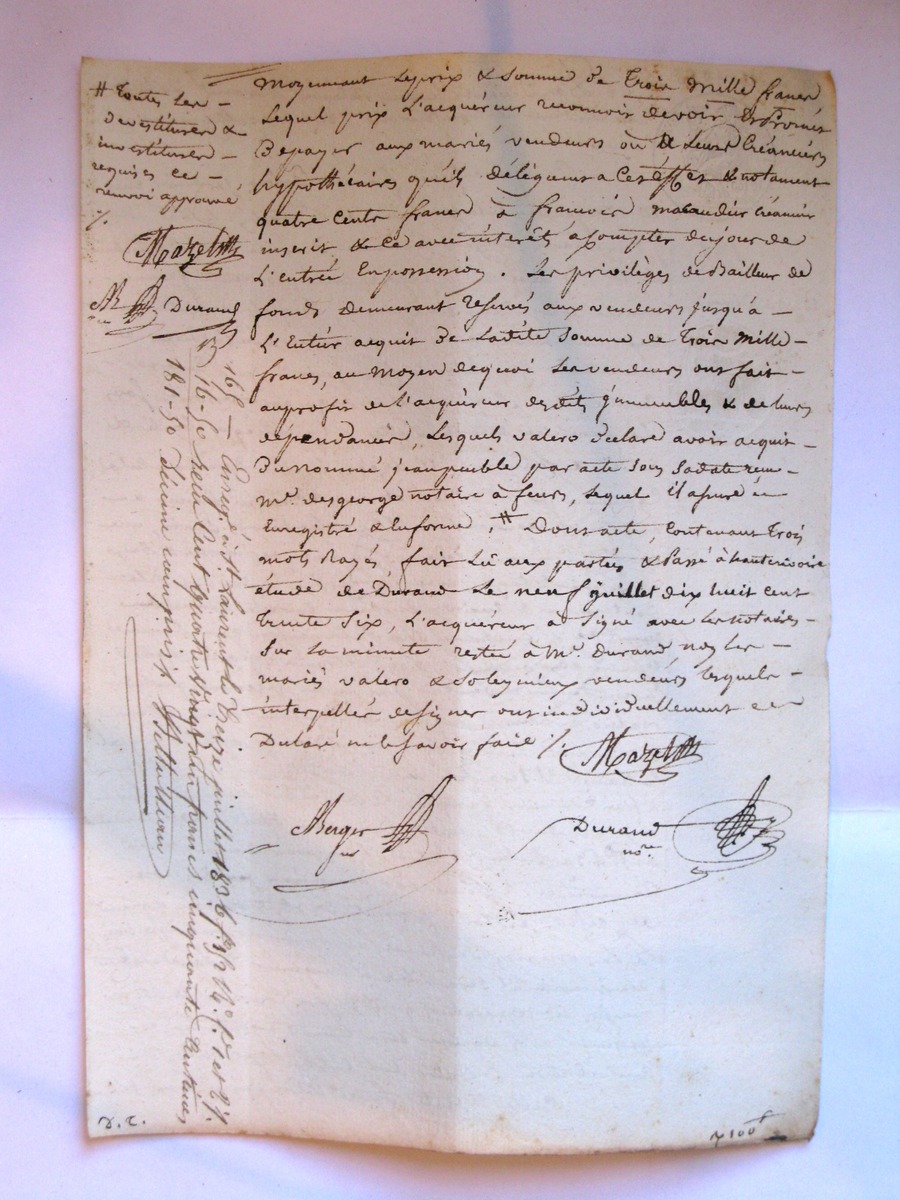 # toutes les
devestitures &
investitures
requises ce
renvoi approuvé
Mazet
Durand
Moyennant le prix & somme de trois mille francs
Lequel prix L'acquéreur reconnoit devoir & Promet
De payer aux mariés vendeurs ou à leurs Créanciers
hypothécaires qu'ils délèguent a Ces effet & notament
quatre Cents francs à francois Créancier
inscrit & Ce avec interêt a Compter du jour de
L'entrée En possession. Les privilèges de Bailleur de
fonds demeurant reservés aux vendeurs jusqu'à
L'Entier acquit de Ladite Somme de trois Mille
francs, au Moyen de quoi Les vendeurs ont fait
au profit de L'acquéreur desdits jmmeubles & de leurs
dépendances, Lesquels valero declare avoir acquit
Du nommé par acte Sous Sa date reçu
Me. desgeorge notaire à feurs, Lequel il assure
Enregistré & En forme, # Dont acte, Contenant trois
mots Rayés, fait Lu aux parties & Passé à hauterivoire
étude de Durand Le neuf juillet dix huit cent
trente Six, L'acquéreur à Signé avec Les notaires
Sur La minute restée à Me. Durand, non Les
mariés valero & Soleymieux vendeurs Lesquels
interpellés de signer ont individuellement
Déclaré ne le Savoir faire ./.
Mazet
Berger
Durand
nore.
165 — Enregé. à St. Laurent le treize juillet 1836 fo.
16-50 reçu Cent quatre vingt un francs cinquante Centimes
181-50 décime compris